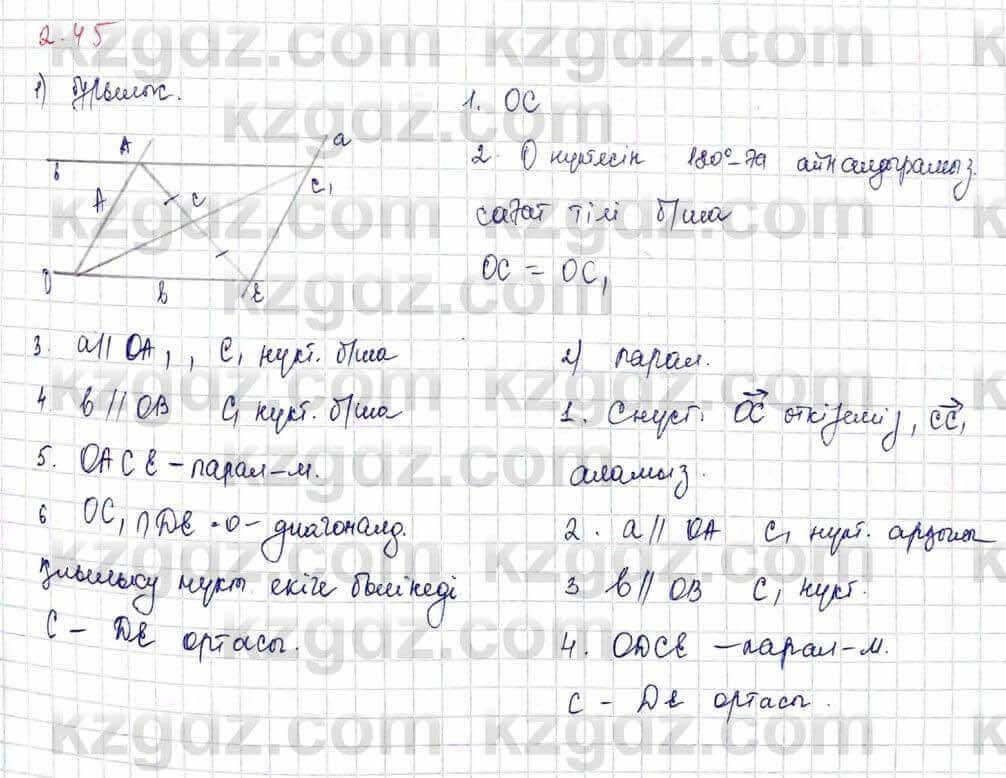 2.45
1) Құрылық.
A
a
b
A
C
C₁
O
b
E
1. OC
2. O нүктесін 180°-қа айналдырамыз.
сағат тілі б/ша
OC = OC₁
3. a || OA, , C₁ нүкт. б/ша
4 b || OB C₁ нүкт. б/ша
5. OACE - парал-м.
6 OC₁ ∩ DE · O - диагональд.
қиылысу нүкт екіге бөлінеді
C - DE ортасы.
2) парал.
1. C нүкт. OC өткіземіз, CC₁
аламыз.
2. a || OA C₁ нүкт. арқылы
3 b || OB C₁ нүкт.
4. ODCE - парал-м.
C - DE ортасы.
kzgdz.com